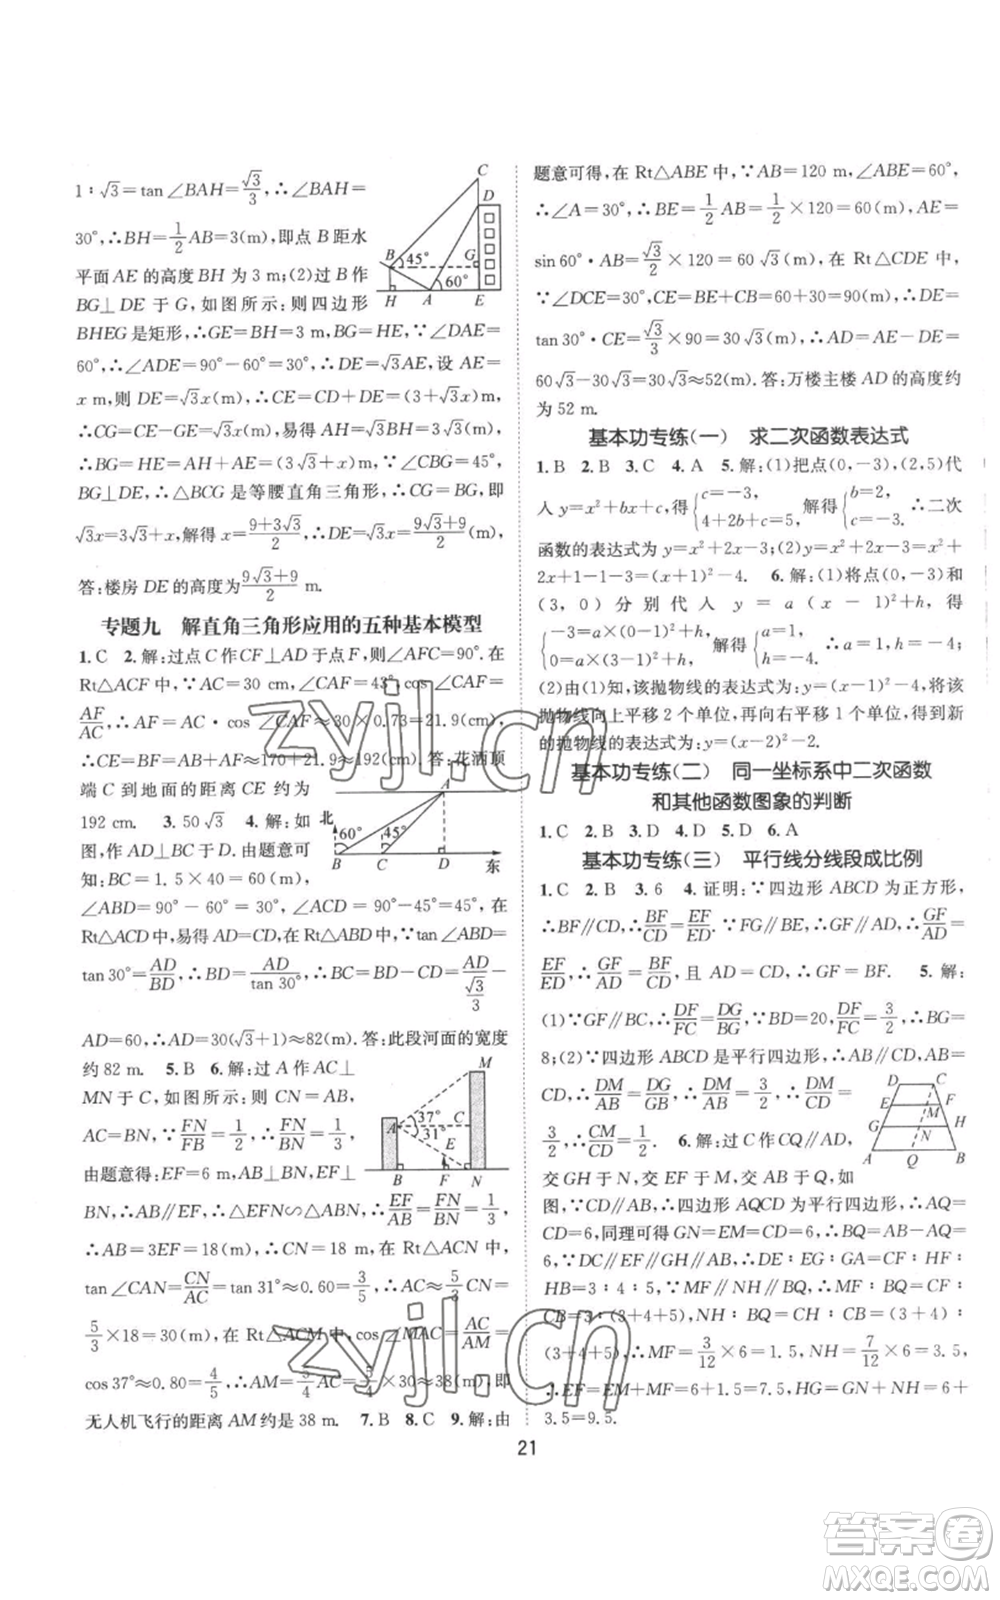 1∶√3=tan∠BAH=√3/3,∴∠BAH=
30°,∴BH=1/2AB=3(m),即点 B 距水
平面 AE 的高度 BH 为 3 m;(2)过 B 作
BG⊥DE 于 G,如图所示:则四边形
BHEG 是矩形,∴GE=BH=3 m,BG=HE,∵∠DAE=
60°,∴∠ADE=90°-60°=30°,∴DE=√3AE,设 AE=
x m,则 DE=√3x(m),∴CE=CD+DE=(3+√3x)m,
∴CG=CE-GE=√3x(m),易得 AH=√3BH=3√3(m),
∴BG=HE=AH+AE=(3√3+x)m,∵∠CBG=45°,
BG⊥CE,∴△BCG 是等腰直角三角形,∴CG=BG,即
√3x=3√3+x,解得 x=(9+3√3)/2,∴DE=√3x=(9√3+9)/2(m).
答:楼房 DE 的高度为(9√3+9)/2 m.
专题九 解直角三角形应用的五种基本模型
1.C 2.解:过点 C 作 CF⊥AD 于点 F,则∠AFC=90°.在
Rt△ACF 中,∵AC=30 cm,∠CAF=43°,cos∠CAF=
AF/AC,∴AF=AC·cos∠CAF≈30×0.73=21.9(cm),
∴CE=BF=AB+AF≈170+21.9≈192(cm).答:花洒顶
端 C 到地面的距离 CE 约为
192 cm. 3.50√3 4.解:如
图,作 AD⊥BC 于 D.由题意可
知:BC=1.5×40=60(m),
∠ABD=90°-60°=30°,∠ACD=90°-45°=45°,在
Rt△ACD 中,易得 AD=CD,在 Rt△ABD 中,∵tan∠ABD=
tan30°=AD/BD,∴BD=AD/tan30°,∴BC=BD-CD=AD/(√3/3)-
AD=60,∴AD=30(√3+1)≈82(m).答:此段河面的宽度
约 82 m. 5.B 6.解:过 A 作 AC⊥
MN 于 C,如图,则 CN=AB,
AC=BN,∵FN/FB=1/2,∴FN/BN=1/3,
由题意得:EF=6 m,AB⊥BN,EF⊥
BN,∴AB∥EF,∴△EFN∽△ABN,∴EF/AB=FN/BN=1/3,
∴AB=3EF=18(m),∴CN=18 m,在 Rt△ACN 中,
tan∠CAN=CN/AC=tan31°≈0.60=3/5,∴AC≈5/3CN=
5/3×18=30(m),在 Rt△ACM 中,cos∠MAC=AC/AM=
cos37°≈0.80=4/5,∴AM=5/4AC=5/4×30≈38(m),即
无人机飞行的距离 AM 约是 38 m. 7.B 8.C 9.解:由
C
D
B
45°
G
60°
H
A
E
北
60°
45°
A
B
C
D
东
M
A
37°
31°
C
E
B
F
N
题意可得,在 Rt△ABE 中,∵AB=120 m,∠ABE=60°,
∴∠A=30°,∴BE=1/2AB=1/2×120=60(m),AE=
sin60°·AB=√3/2×120=60√3(m),在 Rt△CDE 中,
∵∠DCE=30°,CE=BC+BE=60+30=90(m),∴DE=
tan30°·CE=√3/3×90=30√3(m),∴AD=AE-DE=
60√3-30√3=30√3≈52(m).答:万楼主楼 AD 的高度约
为 52 m.
基本功专练(一) 求二次函数表达式
1.B 2.B 3.C 4.A 5.解:(1)把点(0,-3),(2,5)代
入 y=x²+bx+c,得{c=-3, 4+2b+c=5. 解得{b=2, c=-3. ∴二次
函数的表达式为 y=x²+2x-3;(2)∵y=x²+2x-3,∴y
=x²+2x+1-4=(x+1)²-4. 6.解:(1)将点(0,-3)和
(3,0)分别代入 y=a(x-1)²+h,得
{-3=a×(0-1)²+h, 0=a×(3-1)²+h. 解得{a=1, h=-4. ∴a=1,h=-4;
(2)由(1)知,该抛物线的表达式为:y=(x-1)²-4,将该
抛物线向上平移 2 个单位,再向右平移 1 个单位,得到新
的抛物线的表达式为:y=(x-2)²-2.
基本功专练(二) 同一坐标系中二次函数
和其他函数图象的判断
1.C 2.B 3.D 4.D 5.D 6.A
基本功专练(三) 平行线分线段成比例
1.C 2.B 3.6 4.证明:∵四边形 ABCD 为正方形,
∴BF∥CD,∴BF/CD=EF/ED.∵FG∥BE,∴GF∥AD,∴GF/AD=
EF/ED,∴GF/AD=BF/CD,且 AD=CD,∴GF=BF. 5.解:
(1)∵GF∥BC,∴DF/FC=DG/BG,∵BD=20,DF/FC=3/2,∴BG=
8;(2)∵四边形 ABCD 是平行四边形,∴AB∥
CD,∴DM/AB=DG/GB,∴DM/AB=
3/2,∴CM/CD=1/2. 6.解:过 C 作 CQ∥AD,
交 GH 于 N,交 EF 于 M,交 AB 于 Q,如
图,∵CD∥AB,∴四边形 AQCD 为平行四边形,∴AQ=
CD=6,同理可得 GN=EM=CD=6,∴BQ=AB-AQ=
6,∵DC∥EF∥GH∥AB,∴DE∶EG∶GA=CF∶HF∶
HB=3∶4∶5,∵MF∥NH∥BQ,∴MF∶BQ=CF∶
CB=3∶(3+4+5),NH∶BQ=CH∶CB=(3+4)∶
(3+4+5),∴MF=3/12×6=1.5,NH=7/12×6=3.5,
∴EF=EM+MF=6+1.5=7.5,HG=GN+NH=6+
3.5=9.5.
D
C
E
M
F
G
N
H
A
Q
B
21
zyjl.cn
zyjl.cn
答案圈
MXQE.COM